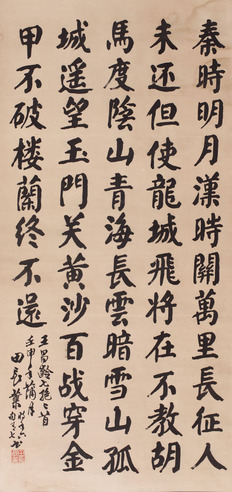 秦時明月漢時關萬里長征人
未还但使龍城飛将在不教胡
馬度陰山青海長雲暗雪山孤
城遥望玉門关黄沙百战穿金
甲不破楼蘭終不還
王昌齡七绝二首
壬申年蒲月
田長業
时年六
旬有七书